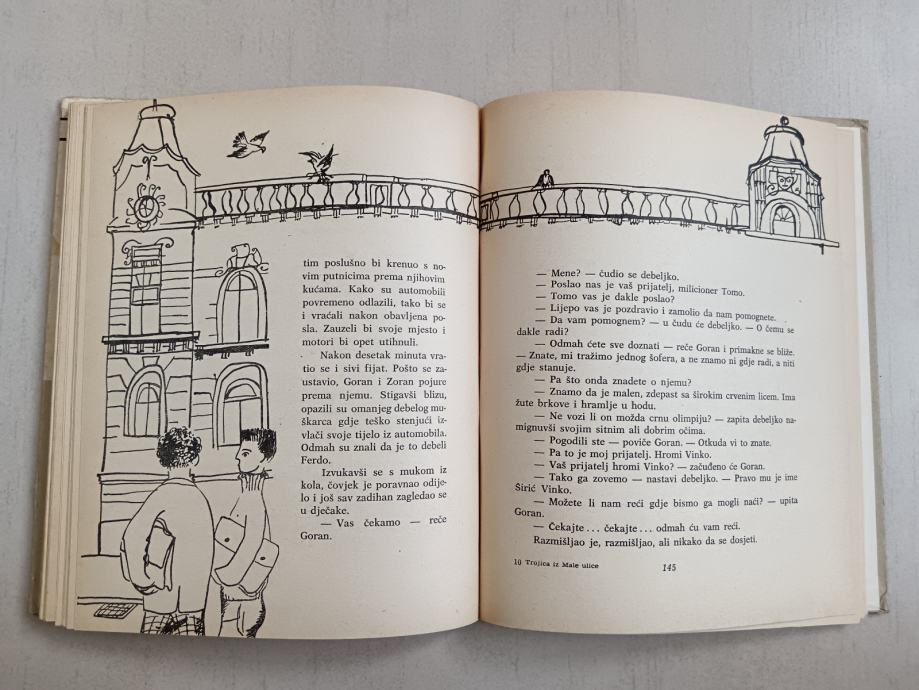 tim poslušno bi krenuo s no-
vim putnicima prema njihovim
kućama. Kako su automobili
povremeno odlazili, tako bi se
i vraćali nakon obavljena po-
sla. Zauzeli bi svoje mjesto i
motori bi opet utihnuli.
Nakon desetak minuta vra-
tio se i sivi fijat. Pošto se za-
ustavio, Goran i Zoran pojure
prema njemu. Stigavši blizu,
opazili su omanjeg debelog mu-
škarca gdje teško stenjući iz-
vlači svoje tijelo iz automobila.
Odmah su znali da je to debeli
Ferdo.
Izvukavši se s mukom iz
kola, čovjek je poravnao odije-
lo i još sav zadihan zagledao se
u dječake.
— Vas čekamo — reče
Goran.
— Mene? — čudio se debeljko.
— Poslao nas je vaš prijatelj, milicioner Tomo.
— Tomo vas je dakle poslao?
— Lijepo vas je pozdravio i zamolio da nam pomognete.
— Da vam pomognem? — u čudu će debeljko. — O čemu se
dakle radi?
— Odmah ćete sve doznati — reče Goran i primakne se bliže.
— Znate, mi tražimo jednog šofera, a ne znamo ni gdje radi, a niti
gdje stanuje.
— Pa što onda znadete o njemu?
— Znamo da je malen, zdepast sa širokim crvenim licem. Ima
žute brkove i hramlje u hodu.
— Ne vozi li on možda crnu olimpiju? — zapita debeljko na-
mignuvši svojim sitnim ali dobrim očima.
— Pogodili ste — poviče Goran. — Otkuda vi to znate.
— Pa to je moj prijatelj. Hromi Vinko.
— Vaš prijatelj hromi Vinko? — začuđeno će Goran.
— Tako ga zovemo — nastavi debeljko. — Pravo mu je ime
Širić Vinko.
— Možete li nam reći gdje bismo ga mogli naći? — upita
Goran.
— Čekajte... čekajte... odmah ću vam reći.
Razmišljao je, razmišljao, ali nikako da se dosjeti.
10 Trojica iz Male ulice
145